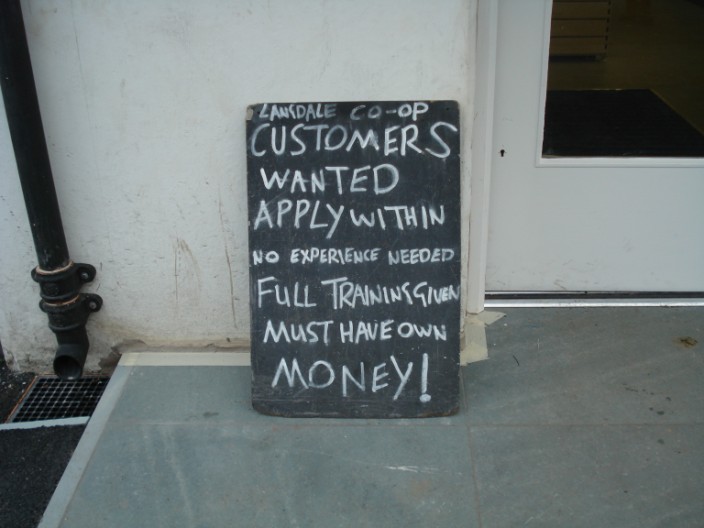 LANSDALE CO-OP
CUSTOMERS
WANTED
APPLY WITHIN
NO EXPERIENCE NEEDED
FULL TRAINING GIVEN
MUST HAVE OWN
MONEY!